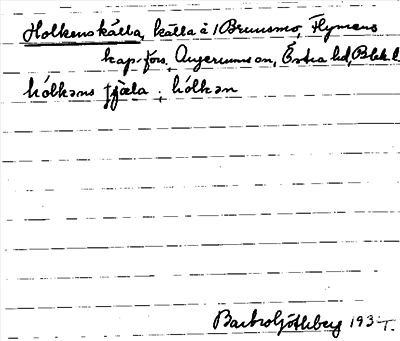 Holkenskälla, källa å 1 Brunsmo, Flymens
kap.förs. Augerums sn, Östra hd, Blek. l
hólkəns ɟæla ; hólkən
Barbro Götheberg 193